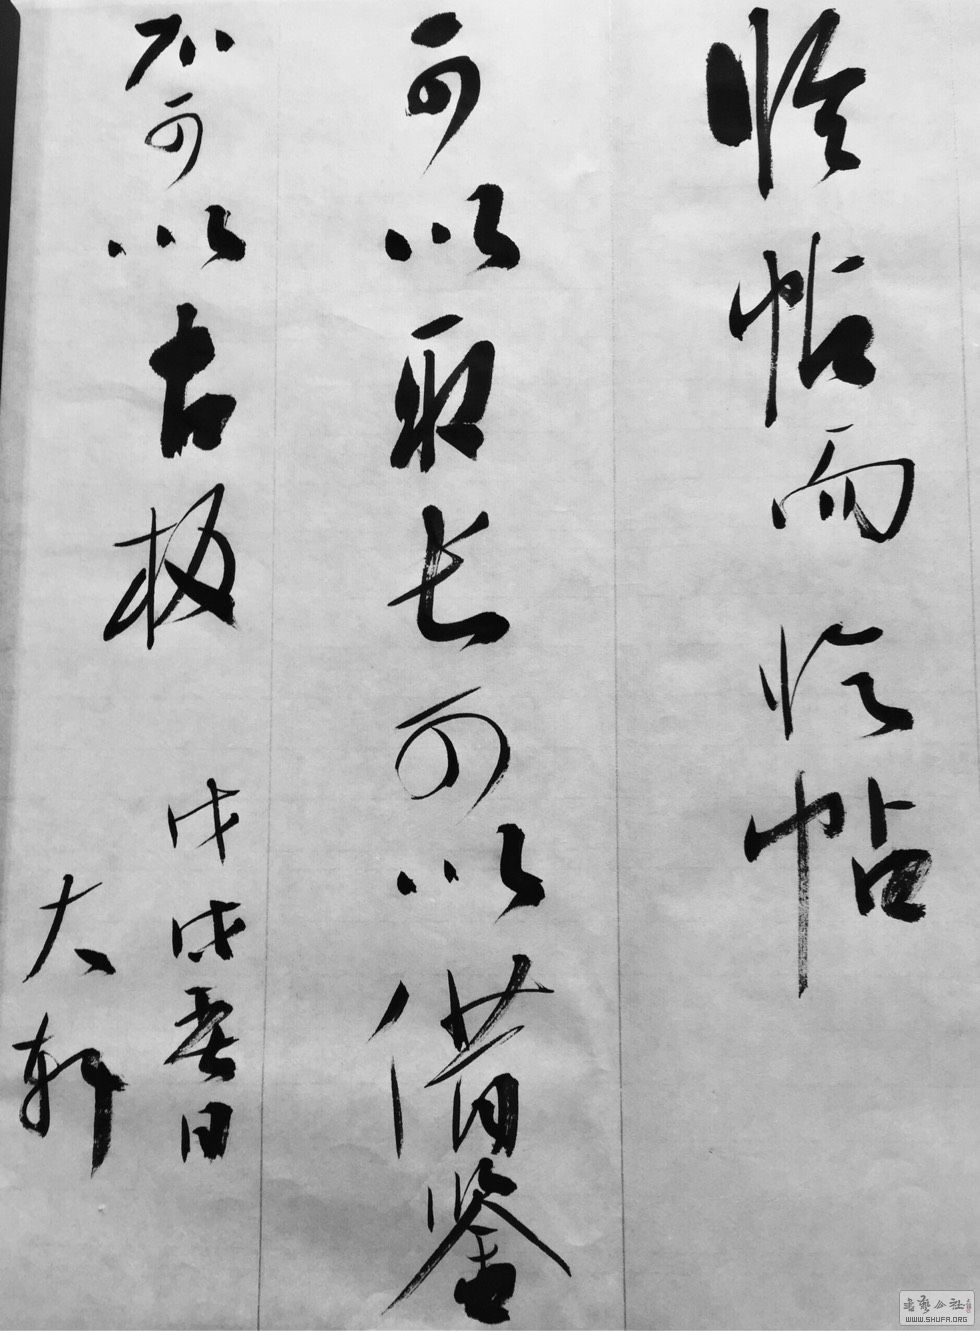 临帖而临帖
可以取长可以借鉴
不可以古板
戊戌春日
大轩
書艺公社
WWW.SHUFA.ORG